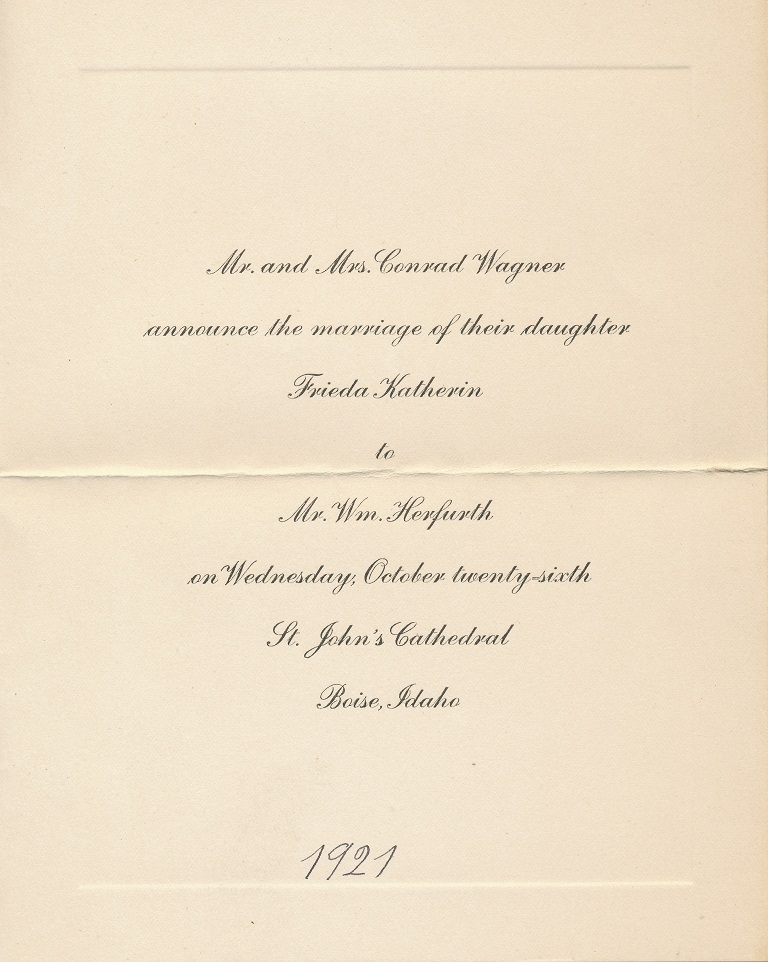 Mr. and Mrs. Conrad Wagner
announce the marriage of their daughter
Frieda Katherin
to
Mr. Wm. Herfurth
on Wednesday, October twenty-sixth
St. John's Cathedral
Boise, Idaho
1921